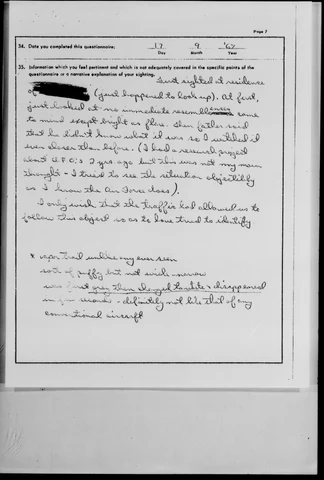 Page 7
34. Date you completed this questionnaire: 17 9 '67
Day Month Year
35. Information which you feel pertinent and which is not adequately covered in the specific points of the
questionnaire or a narrative explanation of your sighting.
First sighted at residence
of (just happened to look up). At first,
just looked at - no immediate resemblances came
to mind except bright as flare. Then father said
that he didn't know what it was so I watched it
even closer than before. (I had a research project
about U.F.O.'s 2 yrs. ago but this was not my main
thought - I tried to see the situation objectively
as I know the Air Force does).
I only wish that the traffic had allowed us to
follow this object so as to have tried to identify
* vapor trail unlike any ever seen
sort of puffy but not wide - narrow
was first gray then changed to white & disappeared
in seconds - definitely not like that of any
conventional aircraft